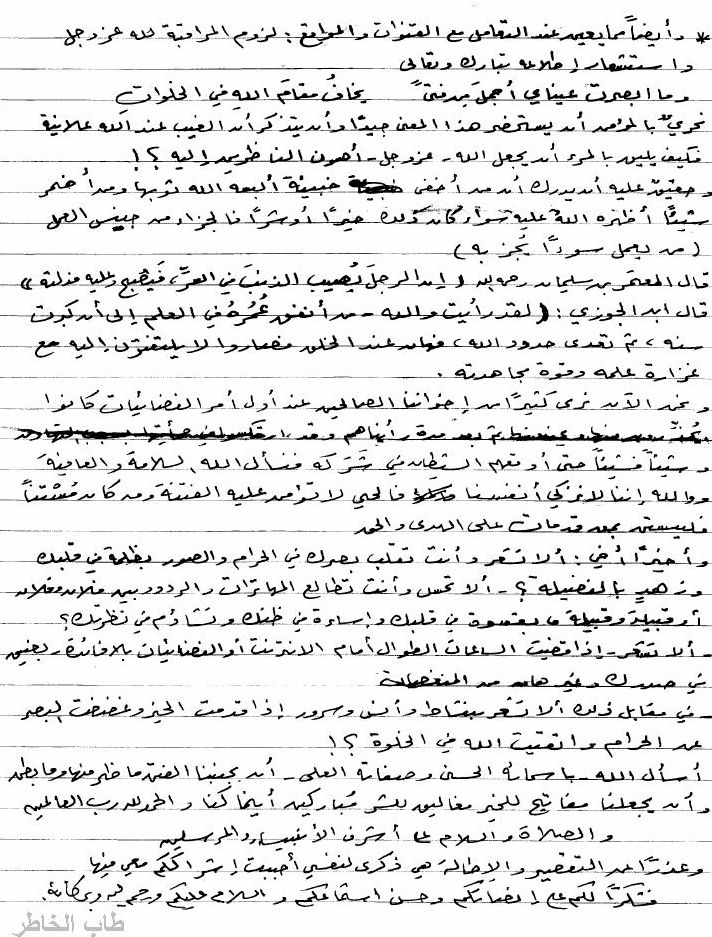 * وأيضاً مما يعين عند التعامل مع القنوات والمواقع : لزوم المراقبة لله عز وجل
واستشعار إطلاعه تبارك وتعالى
وما أبصرت عيناي أجمل من فتىً يخافُ مقامَ اللهِ في الخلواتِ
فحريٌ بالمؤمن أن يستحضر هذا المعنى جيدًا وأن يتذكر أن الغيب عند الله علانية
فكيف يليق بالمرء أن يجعل الله - عز وجل - أهون الناظرين إليه ؟ !
وحقيقٌ عليه أن يدرك أن من أخفى خبيئة ألبسه الله ثوبها ومن أضمر
شيئًا أظهره اللهُ عليه سواء كان ذلك خيرًا أو شرًا فالجزاء من جنس العمل
( من يعمل سوءًا يُجز به )
قال المعتمر بن سليمان رحمه الله ( إن الرجلَ يُصيب الذنبَ في السرِّ فيُصبح وعليه مذلته »
قال ابن الجوزي : ( لقد رأيت والله - من أنفق عُمُرهُ في العلم إلى أن كبرت
سنه ، ثم تعدى حدود الله ، فهان عند الخلق فصاروا لا يلتفتون إليه مع
غزارة علمه وقوة مجاهدته .
ونحن الآن نرى كثيرًا من إخواننا الصالحين عند أول أمر الفضائيات كانوا
وشيئًا فشيئًا حتى أوقعهم الشيطان في شَرَكه فنسأل الله السلامة والعافية
ووالله إننا لا نزكي أنفسنا فالحي لا تؤمن عليه الفتنة ومن كان مُسْتَنًّا
فليستن بمن قد مات على الهدى والحق
وأخيرًا أخي : ألا تشعر وأنت تقلب بصرك في الحرام والصور بظلمة في قلبك
وزهدٍ بالفضيلة ؟ - ألا تحس وأنت تطالع المهاترات والردود بين فلان وفلان
أو قبيلة وقبيلة بقسوة في قلبك وإساءة في ظنك وتشاؤم في نظرتك ؟
- ألا تشعر - إذا قضيت الساعات الطوال أمام الانترنت أو الفضائيات بلا فائدة - بضيق
في صدرك
- في مقابل ذلك ألا تشعر بنشاط وأنس وسرور إذا قدمت الخير وغضضت البصر
عن الحرام واتقيت الله في الخلوة ؟ !
أسأل الله - بأسمائه الحسنى وصفاته العلى - أن يجنبنا الفتن ما ظهر منها وما بطن
وأن يجعلنا مفاتيح للخير مغاليق للشر مُباركين أينما كنا والحمد لله رب العالمين
والصلاة والسلام على أشرف الأنبياء والمرسلين
وعذرًا عن التقصير والإطالة هي ذكرى لنفسي أحببت إشراككم معي فيها
فشكرًا لكم على إنصاتكم وحسن استماعكم والسلام عليكم ورحمة الله وبركاته .
طاب الخاطر